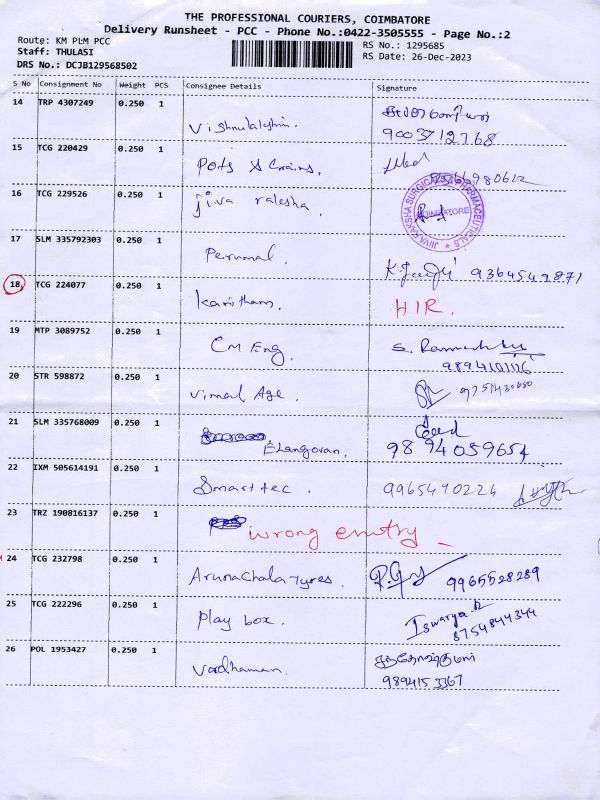 THE PROFESSIONAL COURIERS, COIMBATORE
Delivery Runsheet - PCC - Phone No.:0422-3505555 - Page No.:2
Route: KM PLM PCC
Staff: THULASI
DRS No.: DCJB129568502
RS No.: 1295685
RS Date: 26-Dec-2023
S No Consignment No Weight PCS Consignee Details Signature
14 TRP 4307249 0.250 1 Vishnulakshmi.
9003712768
15 TCG 220429 0.250 1 Pots & Grains,
16 TCG 229526 0.250 1 jiva raksha.
JIVA RAKSHA SURGICALS & PHARMACEUTICALS
COIMBATORE
17 SLM 335792303 0.250 1 Perumal. 9364549871
18 TCG 224077 0.250 1 HIR.
19 MTP 3089752 0.250 1 CM Eng. S. Ramesh
20 STR 598872 0.250 1 Vimal Age.
21 SLM 335768009 0.250 1 Elangovan. 9894059654
22 IXM 505614191 0.250 1 Smarttec. 9965490224
23 TRZ 190816137 0.250 1 wrong entry
24 TCG 232798 0.250 1 Arunachala Tyres. 9965528289
25 TCG 222296 0.250 1 Play box. Iswarya
8754844344
26 POL 1953427 0.250 1 Vardhaman. சந்தோஷ்குமார்
9894153367